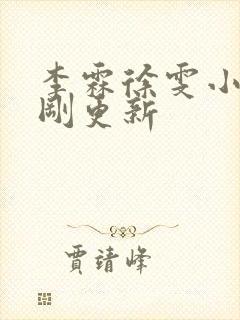 李霖徐雯小
剛更新
賈靖峰